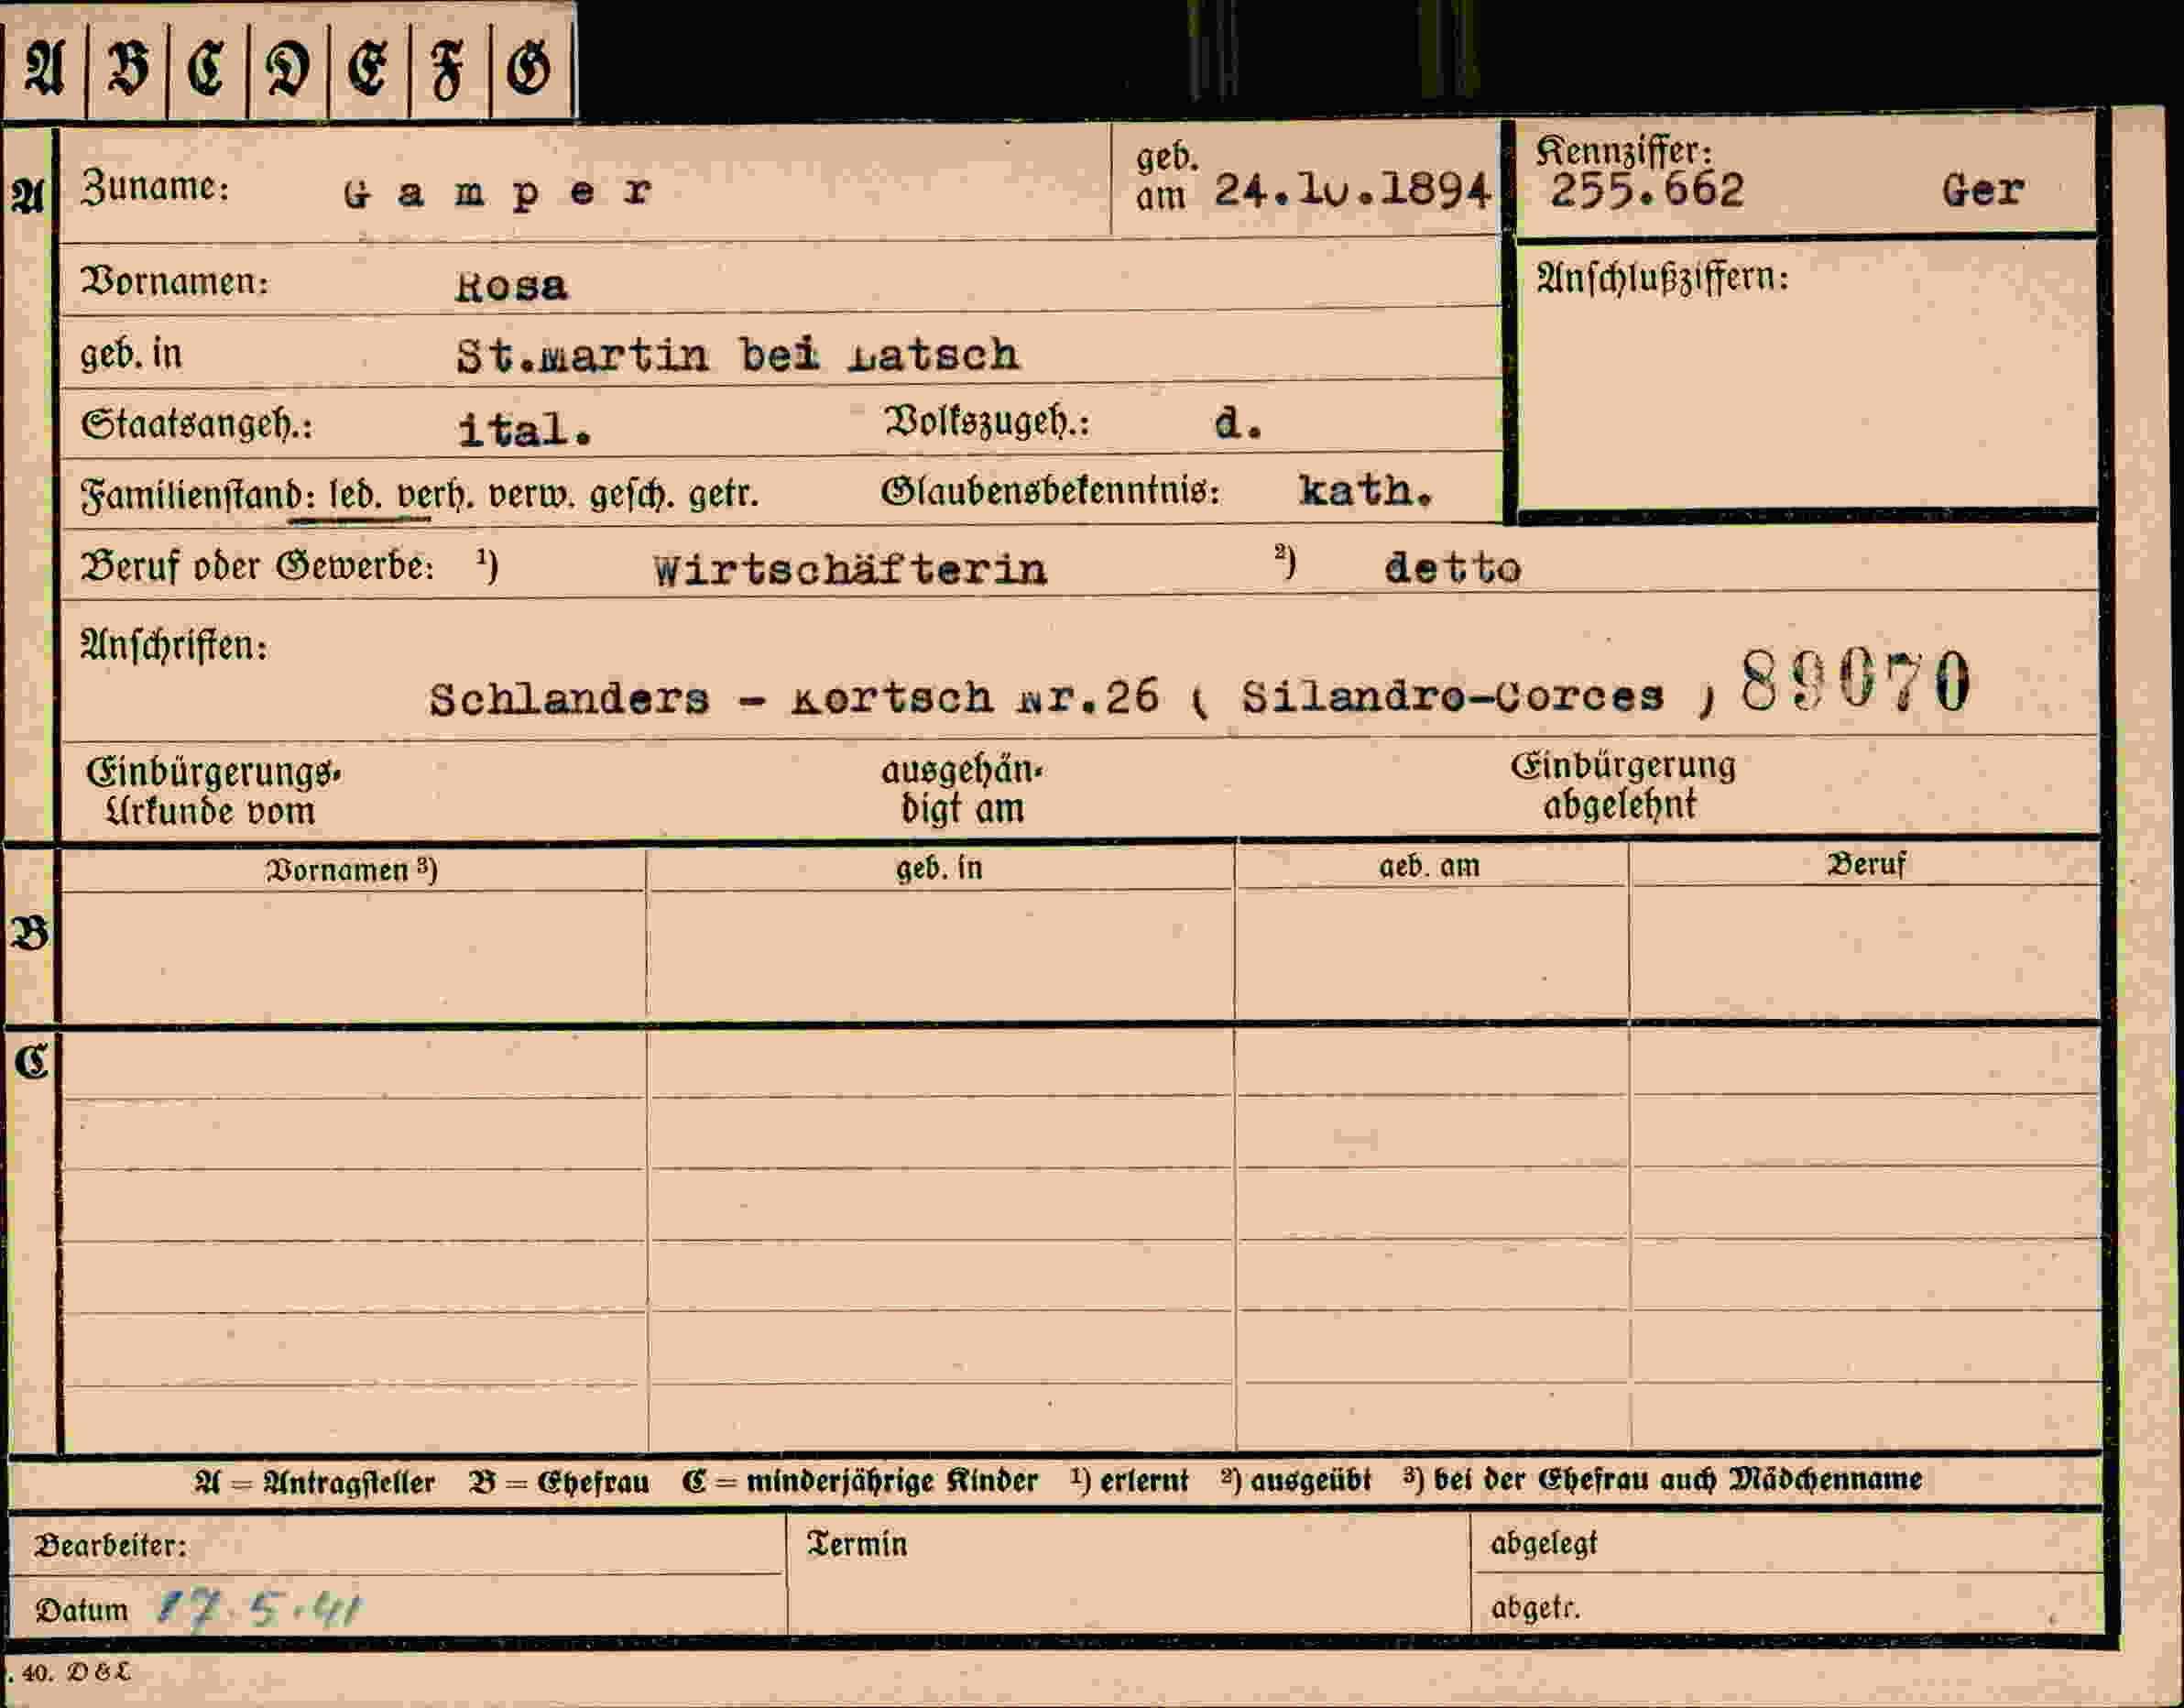 A B C D E F G
A Zuname: Gamper geb. am 24.10.1894 Kennziffer: 255.662 Ger
Vornamen: Rosa Anschlußziffern:
geb. in St.Martin bei Latsch
Staatsangeh.: ital. Volkszugeh.: d.
Familienstand: led. verh. verw. gesch. getr. Glaubensbekenntnis: kath.
Beruf oder Gewerbe: 1) Wirtschäfterin 2) detto
Anschriften:
Schlanders - Kortsch Nr.26 ( Silandro-Corces ) 89070
Einbürgerungs- ausgehän- Einbürgerung
Urkunde vom digt am abgelehnt
Vornamen 3) geb. in geb. am Beruf
B
C
A = Antragsteller B = Ehefrau C = minderjährige Kinder 1) erlernt 2) ausgeübt 3) bei der Ehefrau auch Mädchenname
Bearbeiter: Termin abgelegt
Datum 17.5.41 abgetr.
. 40. D & L